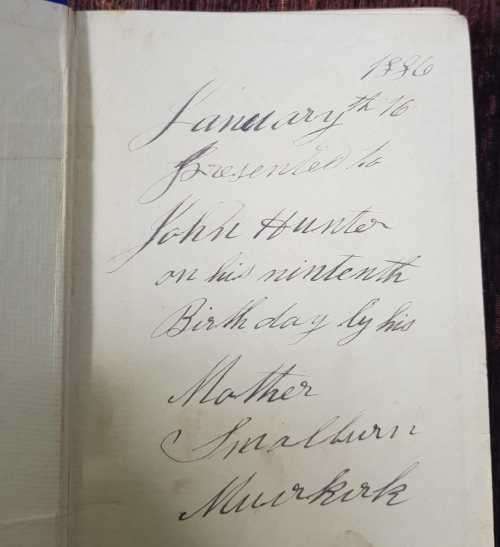 1886
January th 16
Presented to
John Hunter
on his nintenth
Birth day by his
Mother
Smalburn
Muirkirk